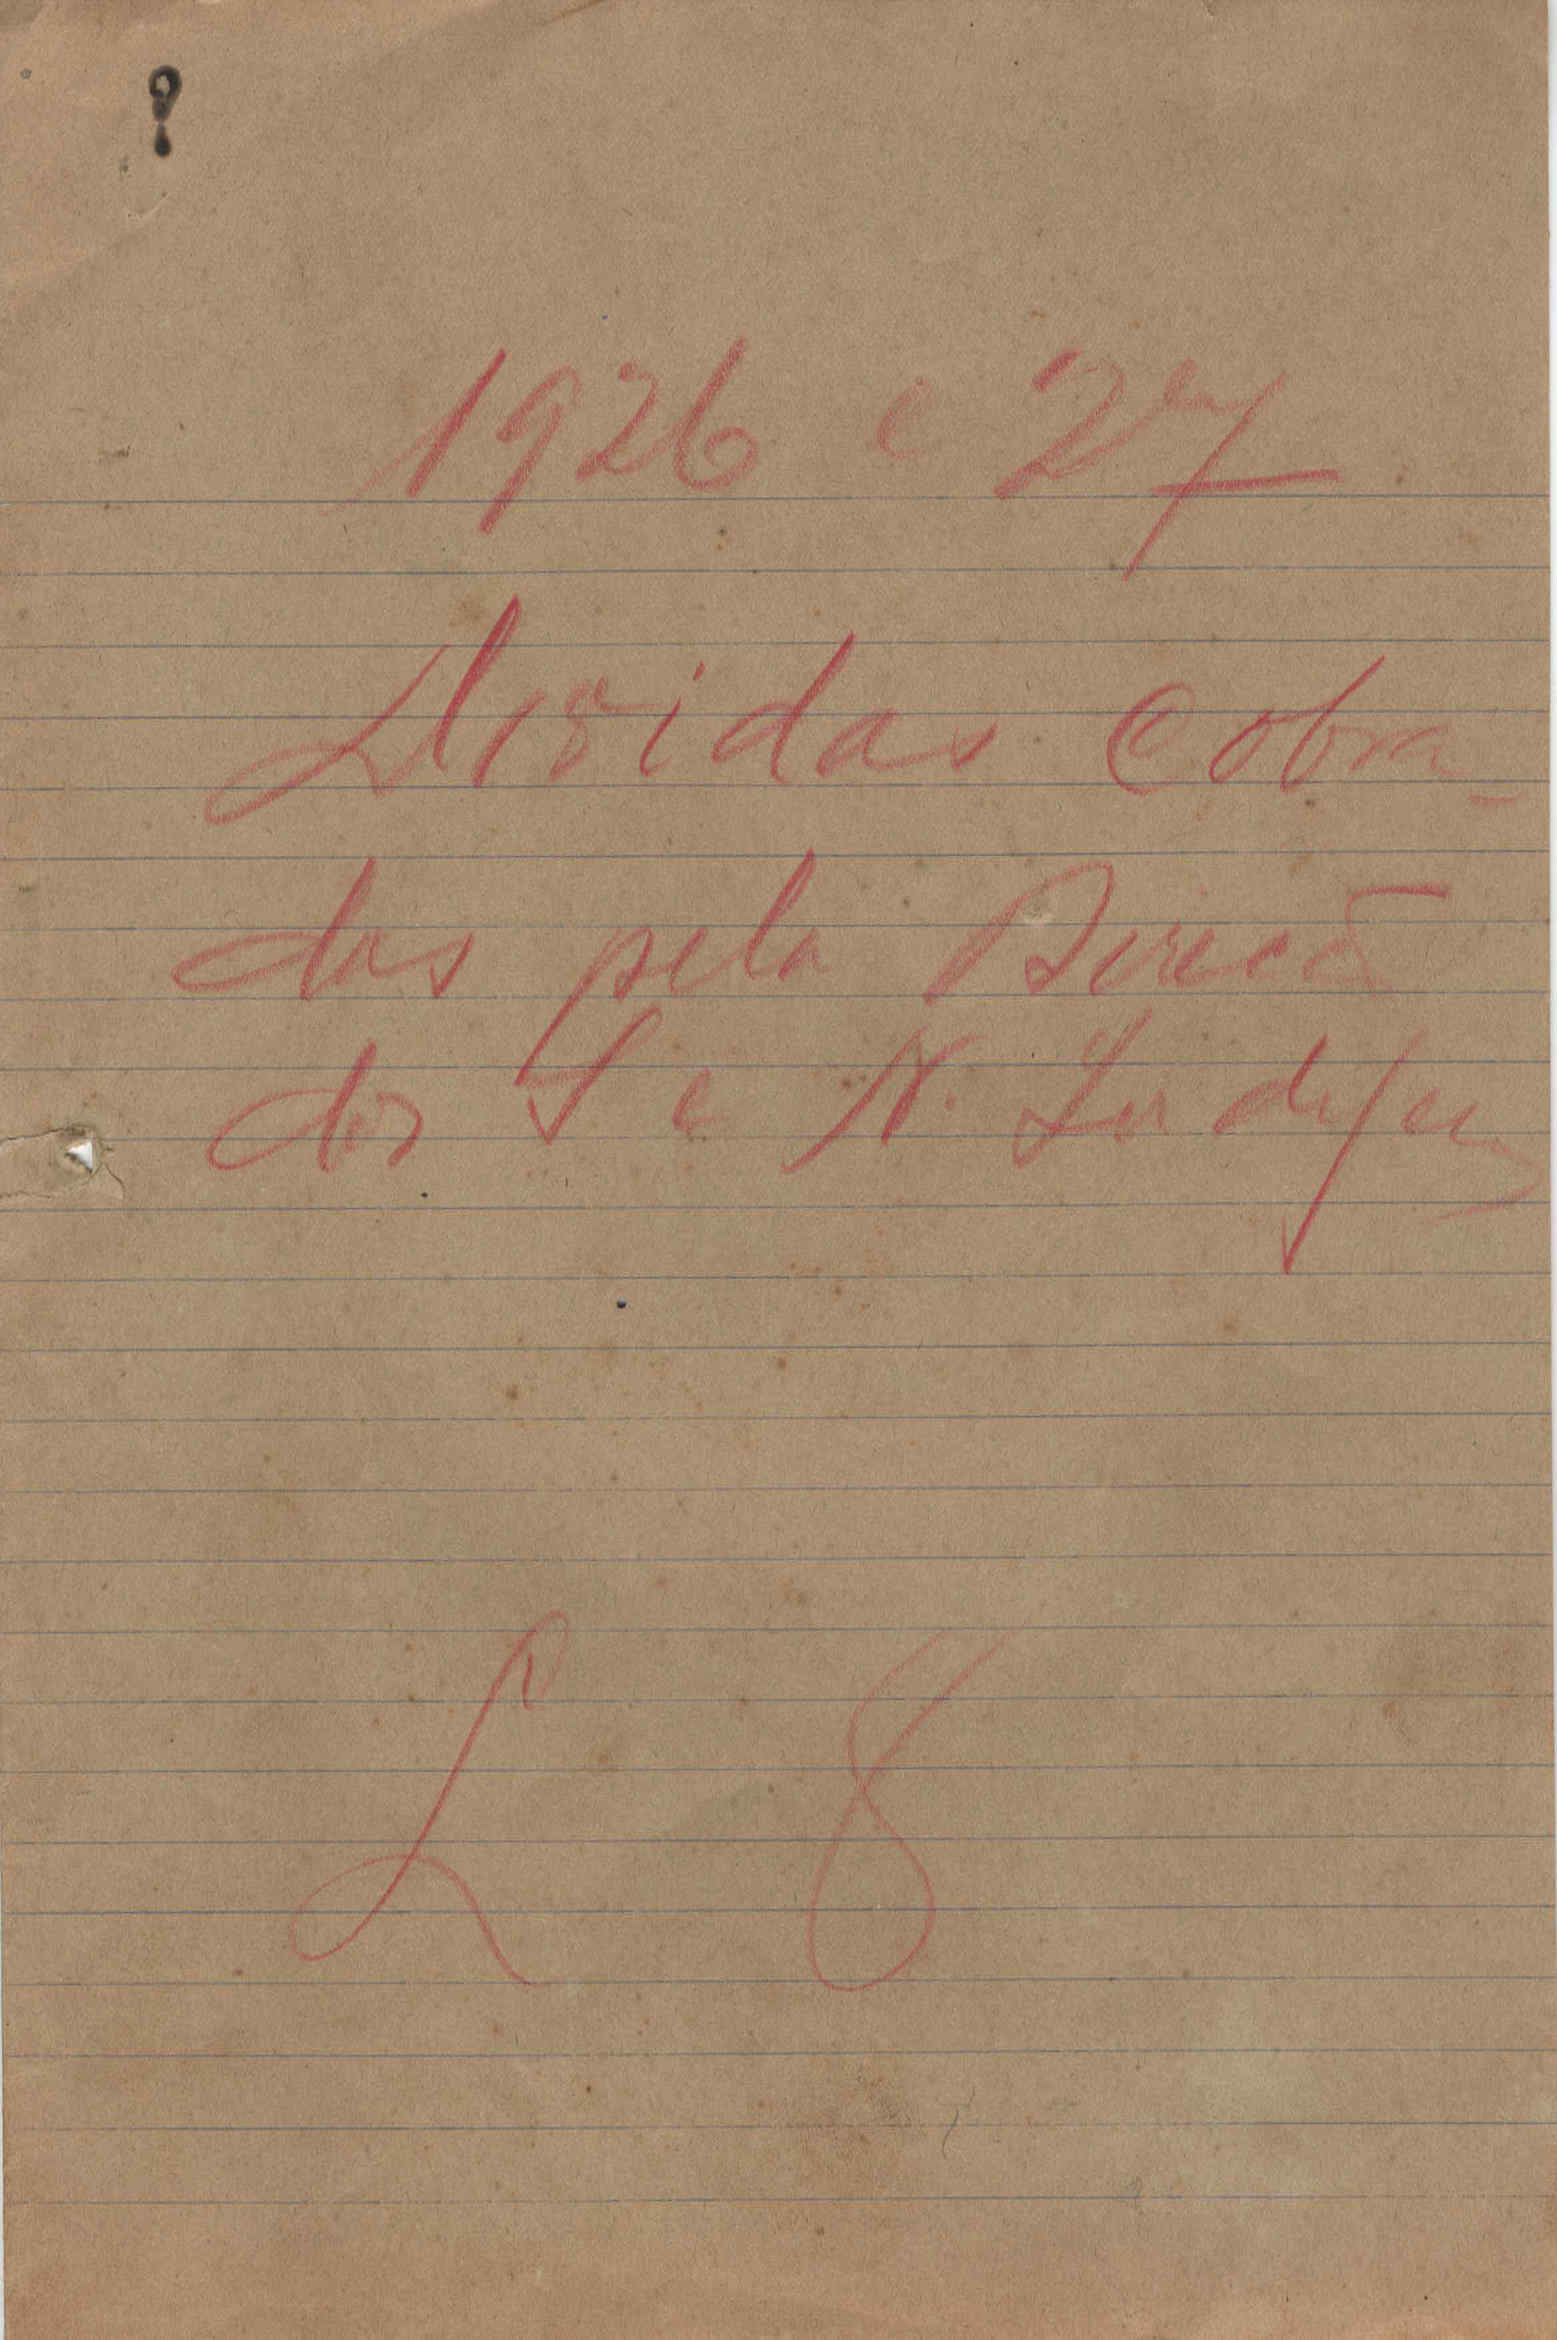 1926 e 27
Dividas Cobra-
das pela Direcã
dos S e N. Indigens
L 8